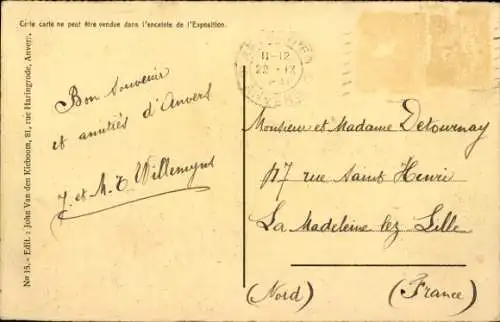 Cette carte ne peut être vendue dans l'enceinte de l'Exposition.
No 15. - Edit. : John Van den Kieboom, 81, rue Haringrode, Anvers.
11-12
22 · IX
Bon souvenir
et amitiés d'Anvers
J. et M. T Willemyns
Monsieur et Madame Detournay
117 rue Saint Henri
La Madeleine lez Lille
(Nord) (France)